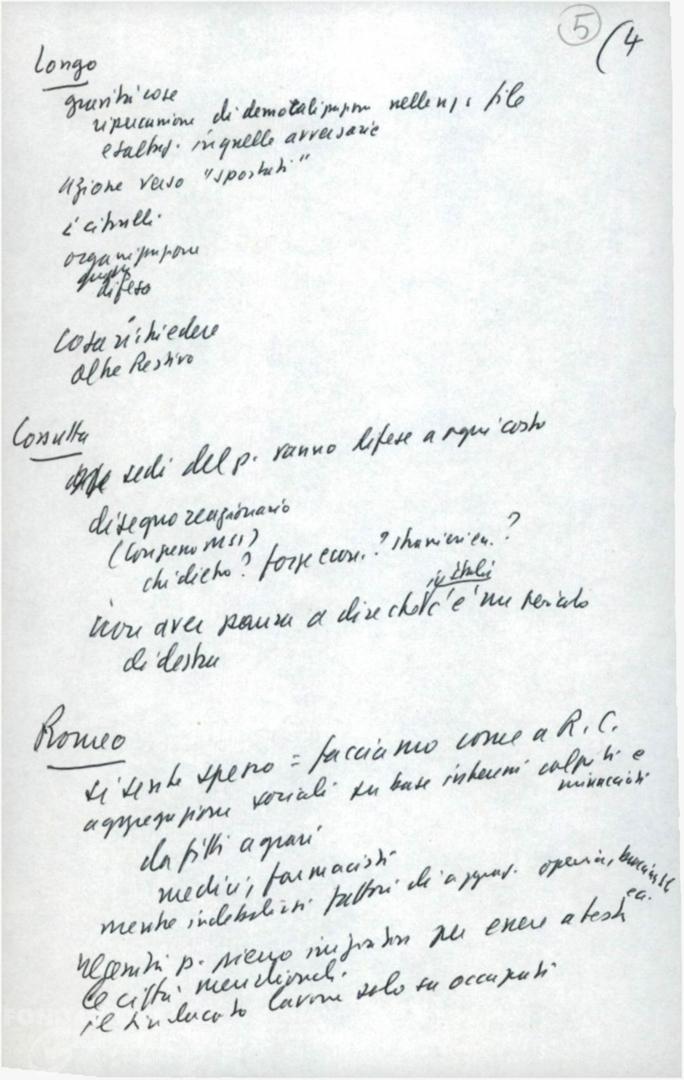 5 (4
Longo
gravità cose
ripercussione di demoralizzazione nelle ns. file
esaltaz. in quelle avversarie
azione verso "spostati"
i citrulli.
organizzazione
difesa
Cosa richiedere
oltre Restivo
Cossutta
sedi del p. vanno difese a ogni costo
disegno reazionario
(Congresso MSI)
chi dietro? forze econ.? straniere ecc.?
in Italia
non aver paura a dire che c'è un pericolo
di destra
Romeo
si sente spesso = facciamo come a R.C.
aggregazione sociali su base interessi colpiti e
minacciati
da fitti agrari
medici, farmacisti
mentre indebolirsi fattori di aggreg. operai, braccianti
ecc.
p. per essere a testa
le città meridionali.
il sindacato lavora solo su occupati